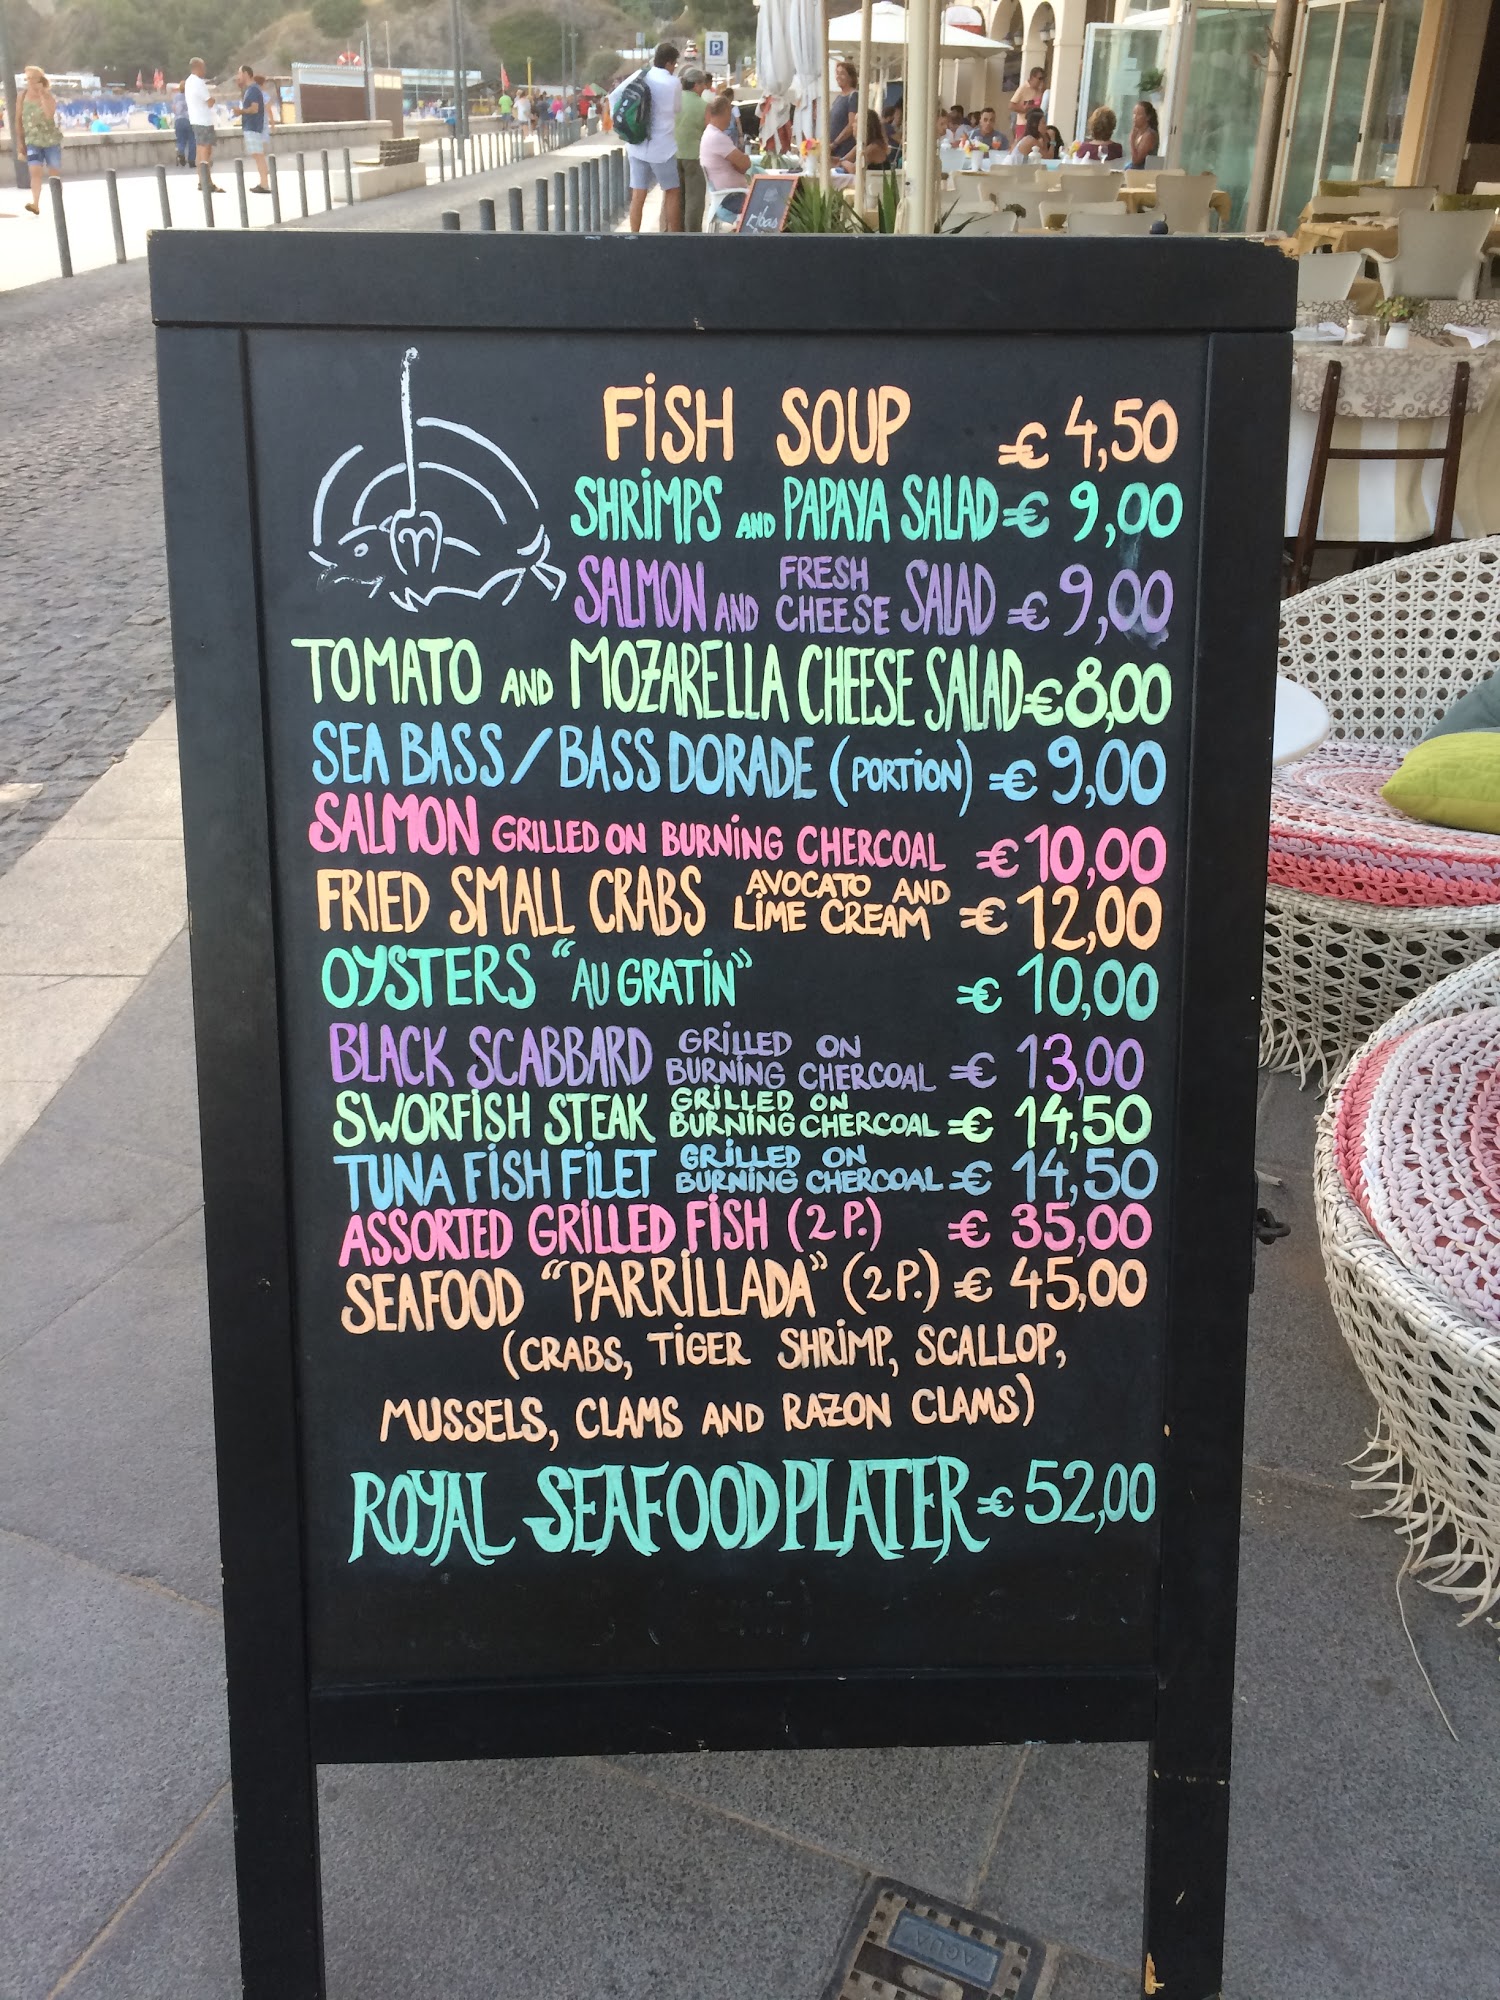 P
Ribas
FiSH SOUP € 4,50
SHRiMPS AND PAPAYA SALAD € 9,00
SALMON AND FRESH CHEESE SALAD € 9,00
TOMATO AND MOZARELLA CHEESE SALAD € 8,00
SEA BASS / BASS DORADE (PORTiON) € 9,00
SALMON GRiLLED ON BURNiNG CHERCOAL € 10,00
FRIED SMALL CRABS AVOCATO AND LiME CREAM € 12,00
OYSTERS "AU GRATiN" € 10,00
BLACK SCABBARD GRiLLED ON BURNiNG CHERCOAL € 13,00
SWORFiSH STEAK GRiLLED ON BURNiNG CHERCOAL € 14,50
TUNA FiSH FiLET GRiLLED ON BURNiNG CHERCOAL € 14,50
ASSORTED GRiLLED FiSH (2 P.) € 35,00
SEAFOOD "PARRiLLADA" (2 P.) € 45,00
(CRABS, TiGER SHRiMP, SCALLOP,
MUSSELS, CLAMS AND RAZON CLAMS)
ROYAL SEAFOOD PLATER € 52,00
AGUA